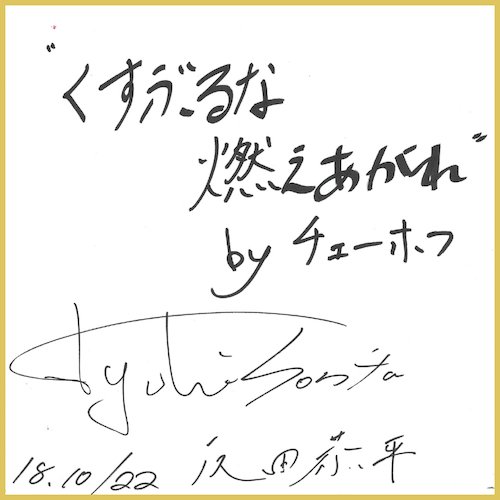 "くすぶるな
燃えあがれ"
by チェーホフ
Kyohei Sorita
18.10/22 反田恭平